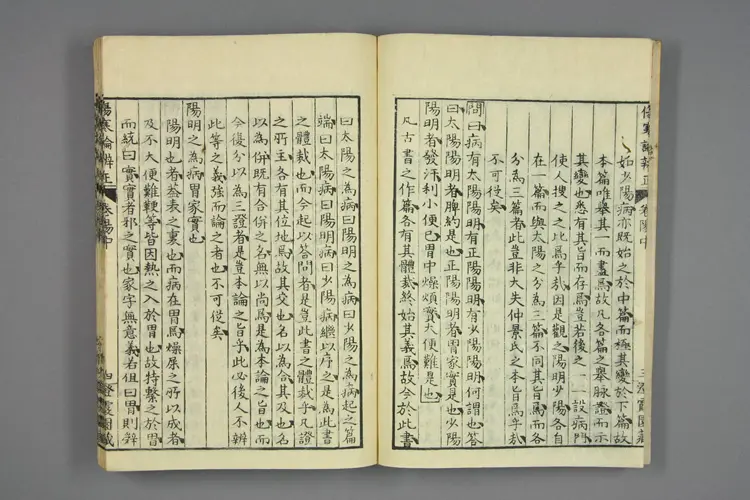 傷寒論辨正 卷陽中
始少陽病亦既始之於中篇而極其變於下篇故
本篇唯舉其一而畫焉故凡各篇之舉脉證而示
其變也悉有其旨而存焉豈若後之一一設病門
使人搜之之比焉乎哉因是觀之陽明少陽各自
在一篇而與太陽之分為三篇不同其旨焉而各
分為三篇者此豈非大失仲景氏之本旨焉乎哉
不可從矣
問曰病有太陽陽明有正陽陽明有少陽陽明何謂也答
曰太陽陽明者脾約是也正陽陽明者胃家實是也少陽
陽明者發汗利小便已胃中燥煩實大便難是也
凡古書之作篇各有其體裁終始其義焉故今於此書
曰太陽之為病曰陽明之為病曰少陽之為病起之篇
端曰太陽病曰陽明病曰少陽病繼以序之是為此書
之體裁也而今起以答問者是豈此書之體裁乎凡證
之所主各有其位地焉故其交也名以為合其及也名
以為併既有合併之名無以尚焉是為本論之旨也而
今復分以為三證者是豈本論之旨乎此必後人不辨
此等之義強而論之者也不可從矣
陽明之為病胃家實也
陽明也者蓋表之裏也而病在胃焉燥屎之所以成者
及不大便難鞕等皆因熱之入於胃也故持繫之於胃
而統曰實實者邪之實也家字無意義若但曰胃則辭
傷寒論辨正 卷陽中